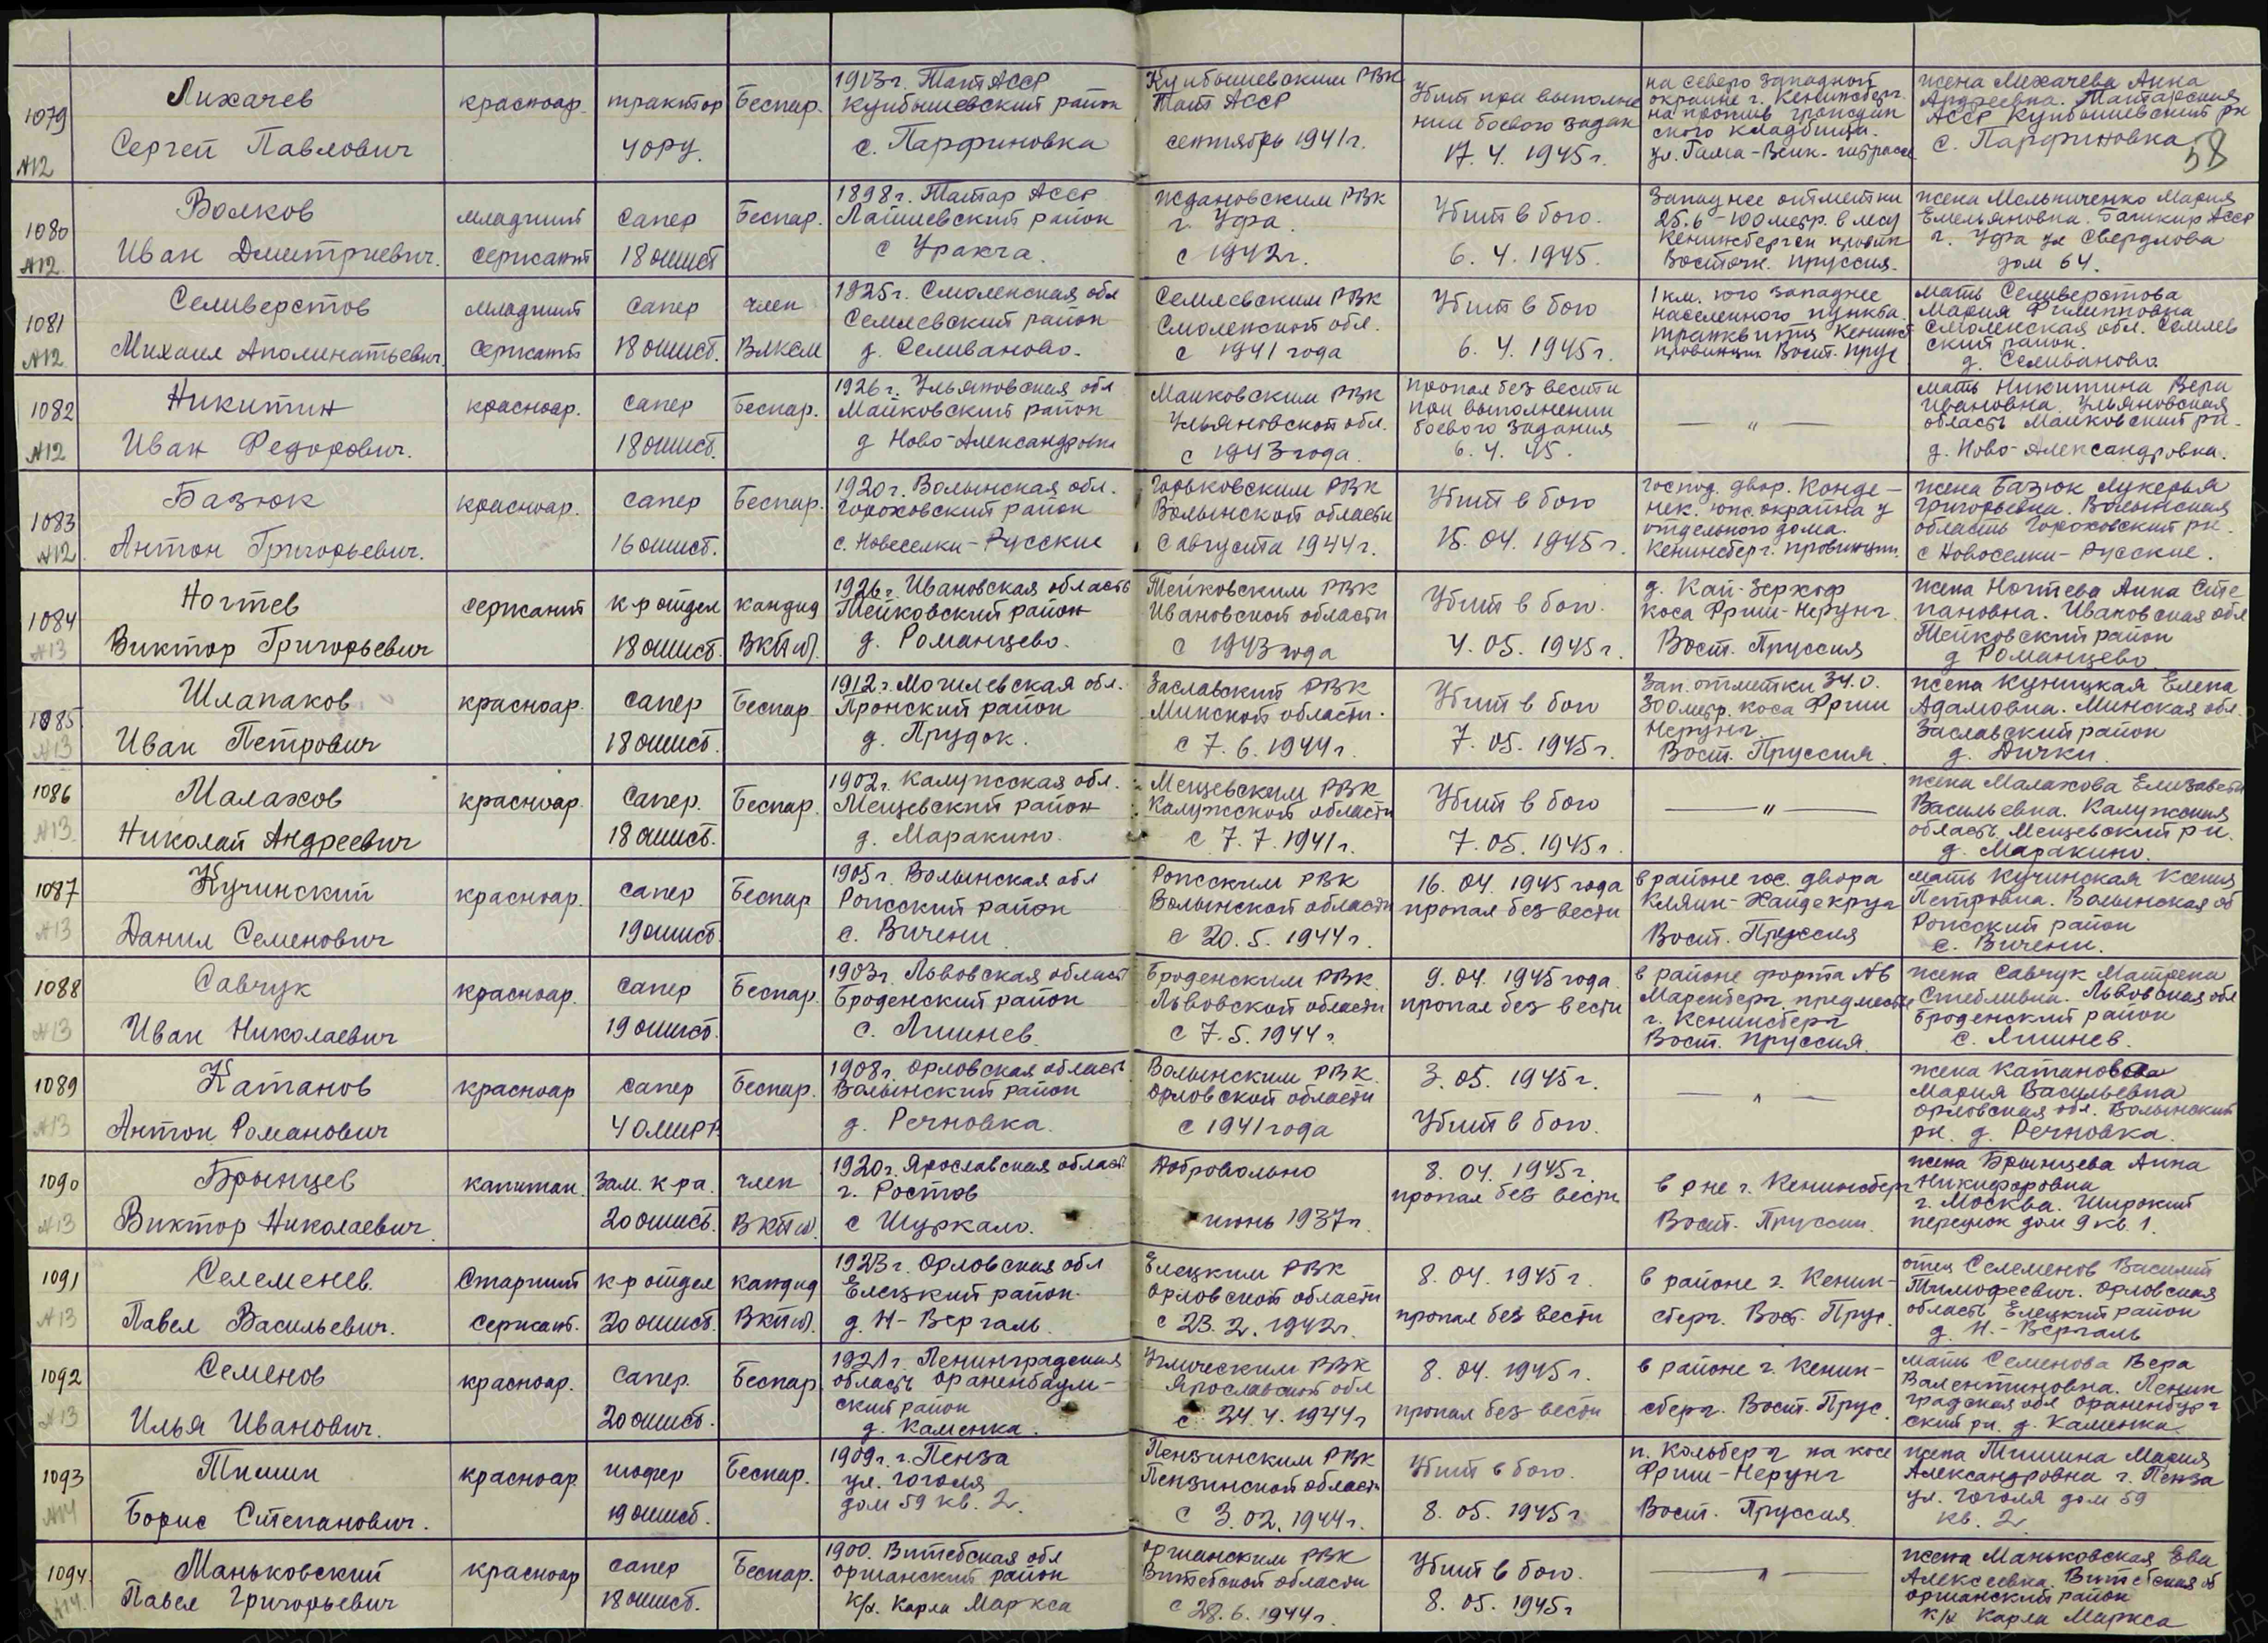 1079
А12
Лихачев
Сергей Павлович
красноар.
трактор
4 ОРУ.
Беспар.
1913 г. ТатАССР
Куйбышевский район
с. Парфиновка
Куйбышевским РВК
Тат АССР
сентябрь 1941 г.
Убит при выполне
нии боевого задан
17. 4. 1945 г.
на северо западной
окраине г. Кенинсберг.
на против граждан
ского кладбища.
жена Лихачева Анна
Андреевна. Татарская
АССР Куйбышевский рн
с. Парфиновка
58
1080
А12
Волков
Иван Дмитриевич.
младший
сержант
сапер
18 ошисб
Беспар.
1898 г. Татар АССР
Лаишевский район
с Уракча.
Ждановским РВК
г. Уфа.
с 1942 г.
Убит в бою.
6. 4. 1945.
Западнее отметки
25.6 - 100 метр. в лесу
Кенинсберген провин
Восточн. Пруссия.
жена Мельниченко Мария
Емельяновна. Башкир АССР
г. Уфа ул Свердлова
дом 64.
1081
А12
Селиверстов
Михаил Аполинатьевич
младший
сержант
сапер
18 ошисб.
член
ВЛКСМ
1925 г. Смоленская обл
Семлевский район
д. Селиваново.
Семлевским РВК
Смоленской обл.
с 1941 года
Убит в бою
6. 4. 1945 г.
1 км. юго западнее
населенного пункта.
Транквитц Кенинсб
провинции Вост. Прус
мать Селиверстова
Мария Филипповна
Смоленская обл. Семлев
ский район.
д. Селиваново
1082
А12
Никитин
Иван Федорович.
красноар.
сапер
18 ошисб.
Беспар.
1926 г. Ульяновская обл
Маинковский район
д Ново-Александровка
Маинковским РВК
Ульяновской обл.
с 1943 года.
пропал без вести
при выполнении
боевого задания
6. 4. 45.
— " —
мать Никитина Вера
Ивановна. Ульяновская
область Маинковский рн.
д. Ново-Александровка.
1083
А12
Базюк
Антон Григорьевич.
красноар.
сапер
16 ошисб.
Беспар.
1920 г. Волынская обл.
Гороховский район
с. Новоселки-Русские
Горьковским РВК
Волынской области
с августа 1944 г.
Убит в бою
15. 04. 1945 г.
господ. двор. Конде-
нек. юж. окраина у
отдельного дома.
Кенинсберг. провинции.
жена Базюк Лукерья
Григорьевна. Волынская
область Гороховский рн.
с Новоселки-Русские.
1084
А13
Ногтев
Виктор Григорьевич
сержант
к-р отдел
18 ошисб.
кандид
ВКП(б).
1926 г. Ивановская область
Тейковский район
д. Романцево.
Тейковским РВК
Ивановской области
с 1943 года
Убит в бою.
4. 05. 1945 г.
д. Кай-Зерхоф
коса Фриш-Нерунг.
Вост. Пруссия
жена Ногтева Анна Сте
пановна. Ивановская обл
Тейковский район
д Романцево
1085
А13
Шлапаков
Иван Петрович
красноар.
сапер
18 ошисб.
Беспар
1912 г. Могилевская обл.
Пронский район
д. Прудок.
Заславский РВК
Минской области.
с 7. 6. 1944 г.
Убит в бою
7. 05. 1945 г.
Зап. отметки 34.0.
300 метр. коса Фриш
Нерунг.
Вост. Пруссия.
жена Куницкая Елена
Адамовна. Минская обл.
Заславский район
д. Дички.
1086
А13
Малахов
Николай Андреевич
красноар.
Сапер.
18 ошисб.
Беспар.
1902 г. Калужская обл.
Мещевский район
д. Маракино.
Мещевским РВК
Калужской области
с 7. 7. 1941 г.
Убит в бою
7. 05. 1945 г.
— " —
жена Малахова Елизавета
Васильевна. Калужская
область, Мещевский рн.
д. Маракино.
1087
А13
Кучинский
Данил Семенович
красноар.
сапер
19 ошисб
Беспар
1905 г. Волынская обл
Рожский район
с. Вичени.
Рожским РВК
Волынской области
с 20. 5. 1944 г.
16. 04. 1945 года
пропал без вести
в районе гос. двора
Кляин-Хайдекруг
Вост. Пруссия
мать Кучинская Ксения
Петровна. Волынская об
Рожский район
с. Вичени.
1088
А13
Савчук
Иван Николаевич
красноар.
сапер
19 ошисб.
Беспар.
1903 г. Львовская област
Броденский район
с. Лишнев.
Броденским РВК.
Львовской области
с 7. 5. 1944 г.
9. 04. 1945 года.
пропал без вести
в районе форта
Маренберг предместье
г. Кенинсберг
Вост. Пруссия.
жена Савчук Матрена
Львовская обл
Броденский район
с. Лишнев.
1089
А13
Катанов
Антон Романович
красноар
сапер
Беспар.
1908 г. Орловская область
Волынский район
д. Речновка.
Волынским РВК.
Орловской области
с 1941 года
3. 05. 1945 г.
Убит в бою.
— " —
жена Катанова
Мария Васильевна
Орловская обл. Волынский
рн. д. Речновка.
1090
А13
Брынцев
Виктор Николаевич.
капитан.
зам. к-ра.
20 ошисб.
член
ВКП(б).
1920 г. Ярославская област
г. Ростов
с Шуркало.
Добровольно
июнь 1937 г.
8. 04. 1945 г.
пропал без вести
в рне г. Кенинсберг
Вост. Пруссии.
жена Брынцева Анна
Никифоровна
г. Москва. Широкий
переулок дом 9 кв. 1.
1091
А13
Селеменев.
Павел Васильевич.
Старший
сержант.
к-р отдел
20 ошисб.
кандид
ВКП(б).
1923 г. Орловская обл
Елецкий район.
д. Н-Вергаль.
Елецким РВК
Орловской области
с 23. 2. 1942 г.
8. 04. 1945 г.
пропал без вести
в районе г. Кенин-
сберг. Вост. Прус.
отец Селеменов Василий
Тимофеевич. Орловская
область Елецкий район
д. Н.-Вергаль
1092
А13
Семенов
Илья Иванович.
красноар.
Сапер.
20 ошисб.
Беспар
1921 г. Ленинградская
область Ораненбаум-
ский район
д. Каменка.
Угличским РВК
Ярославской обл
с 24. 4. 1944 г
8. 04. 1945 г.
пропал без вести
в районе г. Кенин-
сберг. Вост. Прус.
мать Семенова Вера
Валентиновна. Ленин
градская обл Ораненбург
ский рн. д. Каменка.
1093
А14
Тишин
Борис Степанович.
красноар
шофер
19 ошисб.
Беспар.
1909 г. г. Пенза
ул. Гоголя
дом 59 кв. 2.
Пензинским РВК
Пензинской области
с 3. 02. 1944 г.
Убит в бою.
8. 05. 1945 г
п. Кольберг на косе
Фриш-Нерунг
Вост. Пруссия.
жена Тишина Мария
Александровна г. Пенза
ул. Гоголя дом 59
кв. 2.
1094.
А14
Маньковский
Павел Григорьевич
красноар
сапер
18 ошисб.
Беспар.
1900. Витебская обл
Оршанский район
к/х. Карла Маркса
Оршанским РВК
Витебской области
с 28. 6. 1944 г.
Убит в бою.
8. 05. 1945 г
— " —
жена Маньковская Ева
Алексеевна. Витебская об
Оршанский район
к/х Карла Маркса